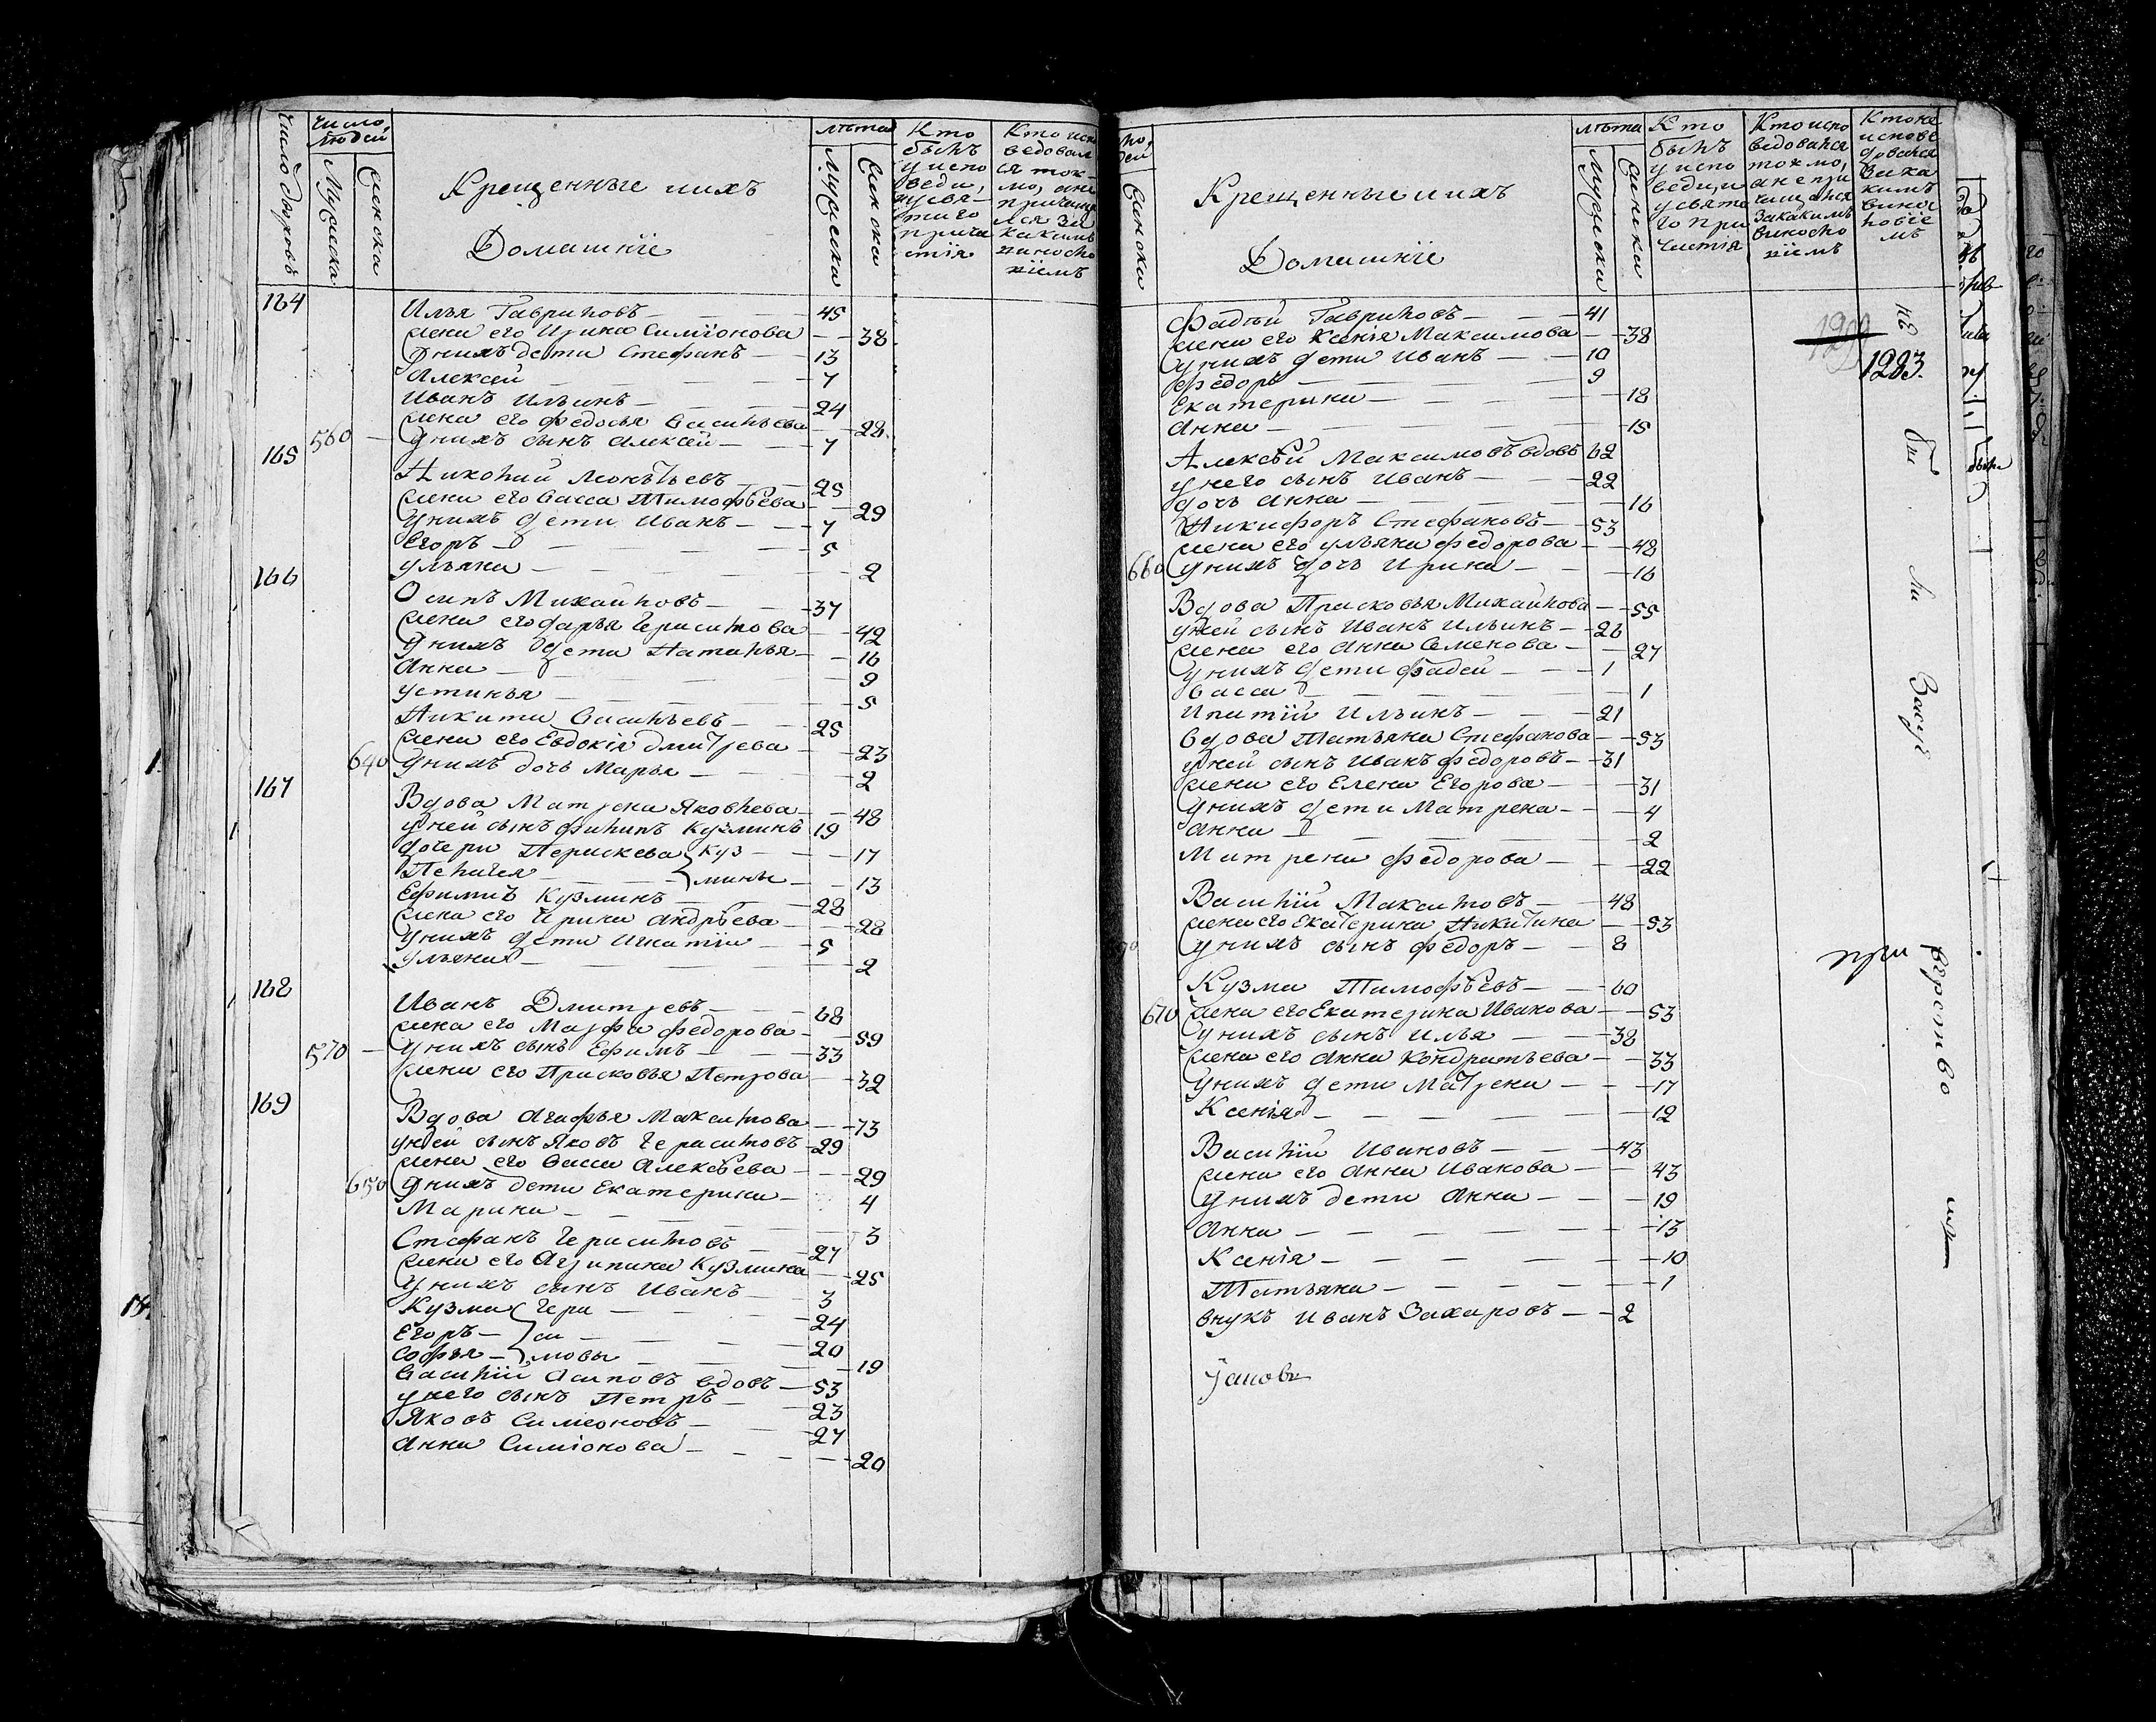 Число дворовъ
Число людей
Мужеска
Женска
Крещенные и ихъ
Домашніе
лѣта
Мужеска
Женска
Кто былъ у исповеди, и у святаго причастія
Кто исповедовался токмо, а не причащался за какимъ винословіемъ
164
Илья Гавриловъ — 45
жена его Ирина Симіонова — 38
У нихъ дети Стефанъ — 13
Алексей — 7
Иванъ Ильинъ — 24
жена его Федосья Васильева — 28
560 — У нихъ сынъ Алексей — 7
165
Николай Леонтьевъ — 25
жена его Васса Тимофѣева — 29
У нихъ дети Иванъ — 7
Егоръ — 5
Ульяна — 2
166
Осипъ Михайловъ — 37
жена его Дарья Герасимова — 42
У нихъ дети Наталья — 16
Анна — 9
Устинья — 5
Никита Васильевъ — 25
жена его Евдокія Дмитрева — 23
640 У нихъ дочь Марья — 2
167
Вдова Матрена Яковлева — 48
У ней сынъ Филипъ Кузминъ 19
дочери Перискева Куз — 17
Пелагея — мины — 13
Ефимъ Кузминъ — 28
жена его Ирина Андрѣева — 28
У нихъ дети Игнатіи — 5
Ульяна — 2
168
Иванъ Дмитревъ — 68
жена его Марфа Федорова — 59
570 — У нихъ сынъ Ефимъ — 33
жена его Прасковья Петрова — 32
169
Вдова Агафья Максимова — 73
У ней сынъ Яковъ Герасимовъ — 29
жена его Васса Алексѣева — 29
650 У нихъ дети Екатерина — 4
Марина — 3
Стефанъ Герасимовъ — 27
жена его Агрипина Кузмина — 25
У нихъ сынъ Иванъ — 3
Кузма Гера — 24
Егоръ — си — 20
Софья — мовы — 19
Василій Осиповъ вдовъ — 53
у него сынъ Петръ — 23
Яковъ Симеоновъ — 27
Анна Симіонова — 20
Женска
Крещенные и ихъ
Домашніе
лѣта
Мужеска
Женска
Кто былъ у исповеди, и у святаго причастія
Кто исповедовался токмо, а не причащался за какимъ винословіемъ
Кто не исповедовался за какимъ винословіемъ
Фадѣй Гавриловъ — 41
жена его Ксенія Максимова — 38
У нихъ дети Иванъ — 10
Федоръ — 9
Екатерина — 18
Анна — 15
1223.
Алексѣй Максимовъ вдовъ 62
у него сынъ Иванъ — 22
дочь Анна — 16
Никифоръ Стефановъ — 53
жена его Ульяна Федорова — 48
660 У нихъ дочь Ирина — 16
Вдова Прасковья Михайлова — 55
У ней сынъ Иванъ Ильинъ — 26
жена его Анна Семенова — 27
У нихъ дети Фадей — 1
Васса — 1
Ипатій Ильинъ — 21
Вдова Татьяна Стефанова — 53
У ней сынъ Иванъ Федоровъ — 31
жена его Елена Егорова — 31
У нихъ дети Матрена — 4
Анна — 2
Матрена Федорова — 22
Василій Максимовъ — 48
жена его Екатерина Никитина — 53
У нихъ сынъ Федоръ — 8
Кузма Тимофѣевъ — 60
670 жена его Екатерина Иванова — 53
У нихъ сынъ Илья — 38
жена его Анна Кондратьева — 33
У нихъ дети Матрена — 17
Ксенія — 12
Василій Ивановъ — 43
жена его Анна Иванова — 43
У нихъ дети Анна — 19
Анна — 13
Ксенія — 10
Татьяна — 1
внукъ Иванъ Захаровъ — 2